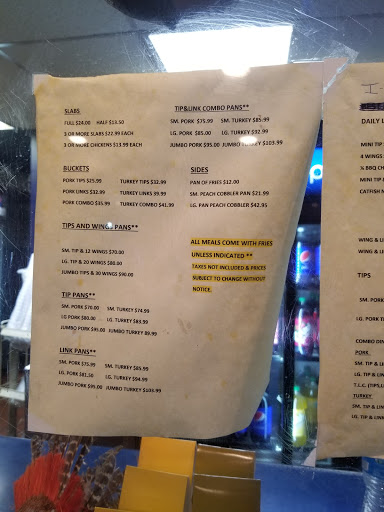 SLABS
FULL $24.00 HALF $13.50
3 OR MORE SLABS $22.99 EACH
3 OR MORE CHICKENS $13.99 EACH
BUCKETS
PORK TIPS $25.99 TURKEY TIPS $32.99
PORK LINKS $32.99 TURKEY LINKS 39.99
PORK COMBO $35.99 TURKEY COMBO $41.99
TIPS AND WINGS PANS**
SM. TIP & 12 WINGS $70.00
LG. TIP & 20 WINGS $80.00
JUMBO TIPS & 30 WINGS $90.00
TIP PANS**
SM. PORK $70.00 SM. TURKEY $74.99
LG PORK $80.00 LG. TURKEY $83.99
JUMBO PORK $95.00 JUMBO TURKEY 89.99
LINK PANS**
SM. PORK $75.99 SM. TURKEY $85.99
LG. PORK $81.50 LG. TURKEY $94.99
JUMBO PORK $95.00 JUMBO TURKEY $103.99
TIP&LINK COMBO PANS**
SM. PORK $75.99 SM. TURKEY $85.99
LG. PORK $85.00 LG. TURKEY $92.99
JUMBO PORK $95.00 JUMBO TURKEY $103.99
SIDES
PAN OF FRIES $12.00
SM. PEACH COBBLER PAN $21.99
LG. PAN PEACH COBBLER $42.95
ALL MEALS COME WITH FRIES
UNLESS INDICATED **
TAXES NOT INCLUDED & PRICES
SUBJECT TO CHANGE WITHOUT
NOTICE.
DAILY
MINI TIP
4 WINGS
½ BBQ
MINI TIP
CATFISH
WING &
WING &
TIPS
SM. PORK
LG. PORK
COMBO
PORK
SM. TIP &
LG. TIP &
T.L.C. (TIPS,
TURKEY
SM. TIP &
LG. TIP &